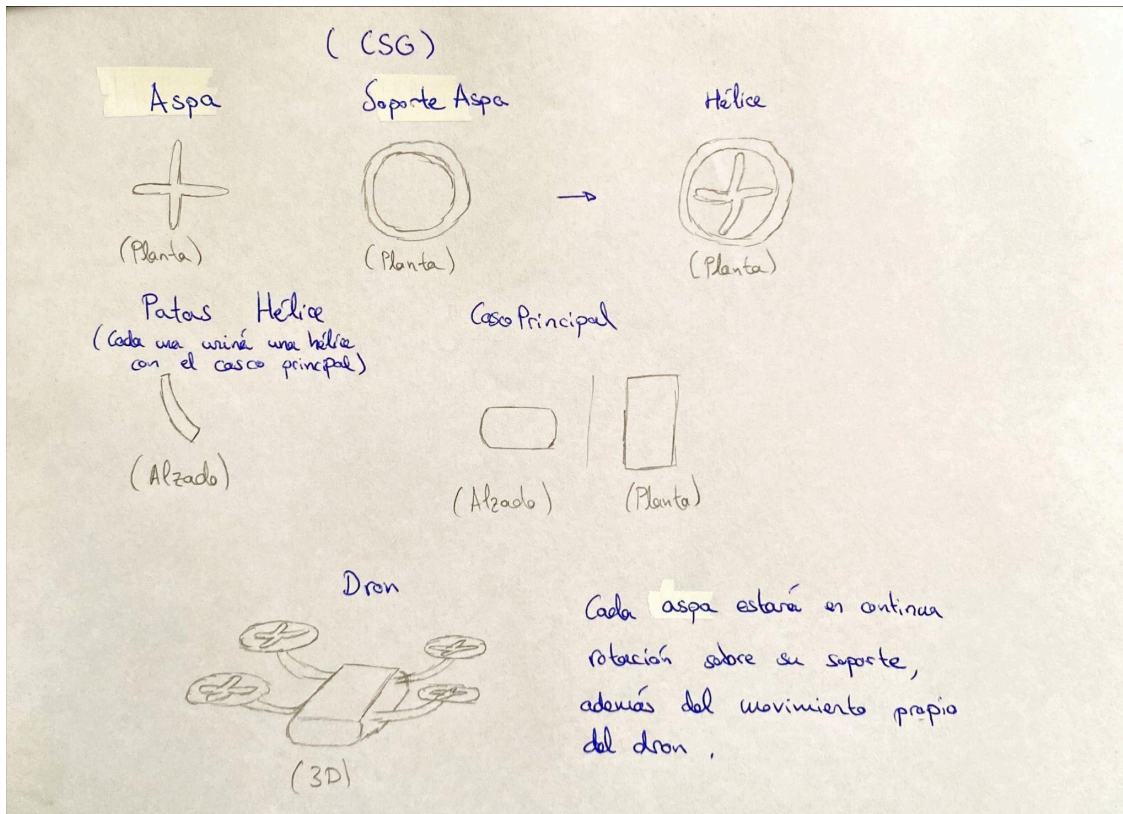 (CSG)
Aspa
Soporte Aspa
Hélice
(Planta)
(Planta)
(Planta)
Patas Hélice
(Cada una unirá una hélice
con el casco principal)
(Alzado)
Casco Principal
(Alzado)
(Planta)
Dron
(3D)
Cada aspa estará en continua
rotación sobre su soporte,
además del movimiento propio
del dron.